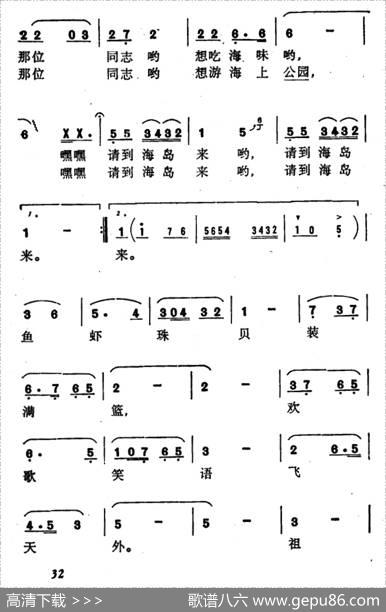 22 03 | 27 2 | 22 6.6 | 6 -
那位 同志哟 想吃海味哟,
那位 同志哟 想游海上公园,
6 XX. | 55 3432 | 1 5 6 | 55 3432
嘿嘿 请到海岛 来哟, 请到海岛
嘿嘿 请到海岛 来哟, 请到海岛
1. 2.
1 - :|| 1 ( i 76 | 5654 3432 | i 0 5 )
来。 来。
3 6 | 5. 4 | 304 32 | 1 - | 7 37
鱼 虾 珠 贝 装
6.7 65 | 2 - | 2 - | 37 65
满 篮, 欢
6. 5 | 107 65 | 3 - | 2 6.5
歌 笑 语 飞
4.5 3 | 5 - | 5 - | 5 -
天 外。 祖
32
高清下载 >>> 歌谱八六 www.gepu86.com